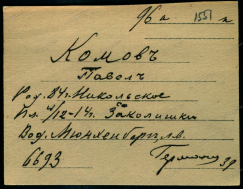 96 а 1551 а
Комовъ
Павелъ
Род. 84 г. Никольское
Пл. 4/12-14 г. Заколишки
Вод. Мюнхенбергл.в.
6693